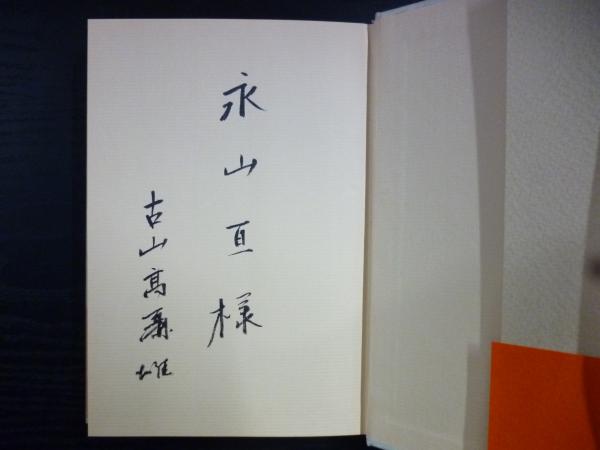 永山亘様
古山高麗雄